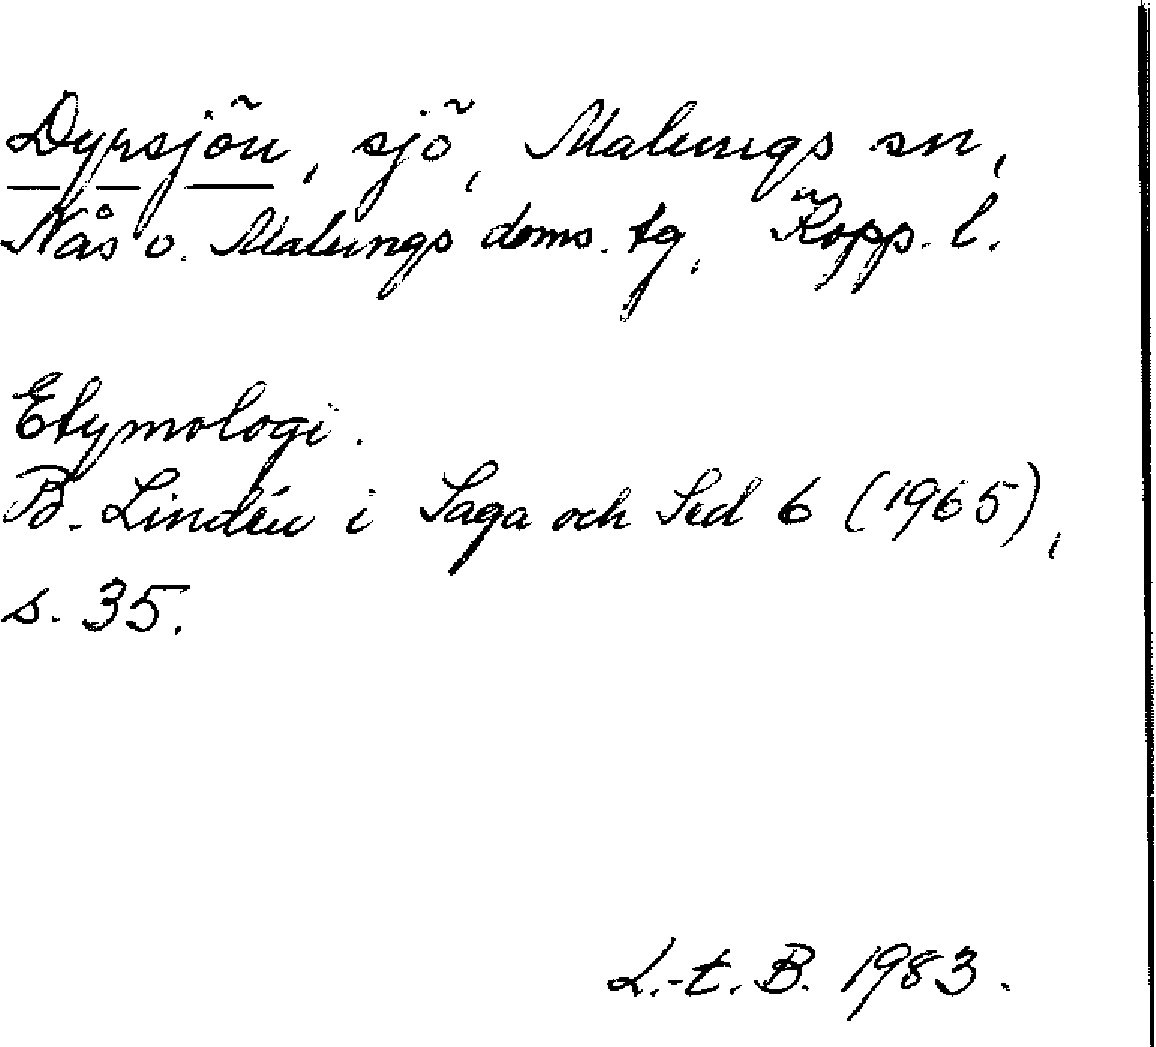 Dyrsjön, sjö, Malungs sn,
Nås o. Malungs doms. tg, Kopp. l.
Etymologi.
B. Lindén i Saga och Sed 6 (1965),
s. 35.
L.-t. B. 1983.